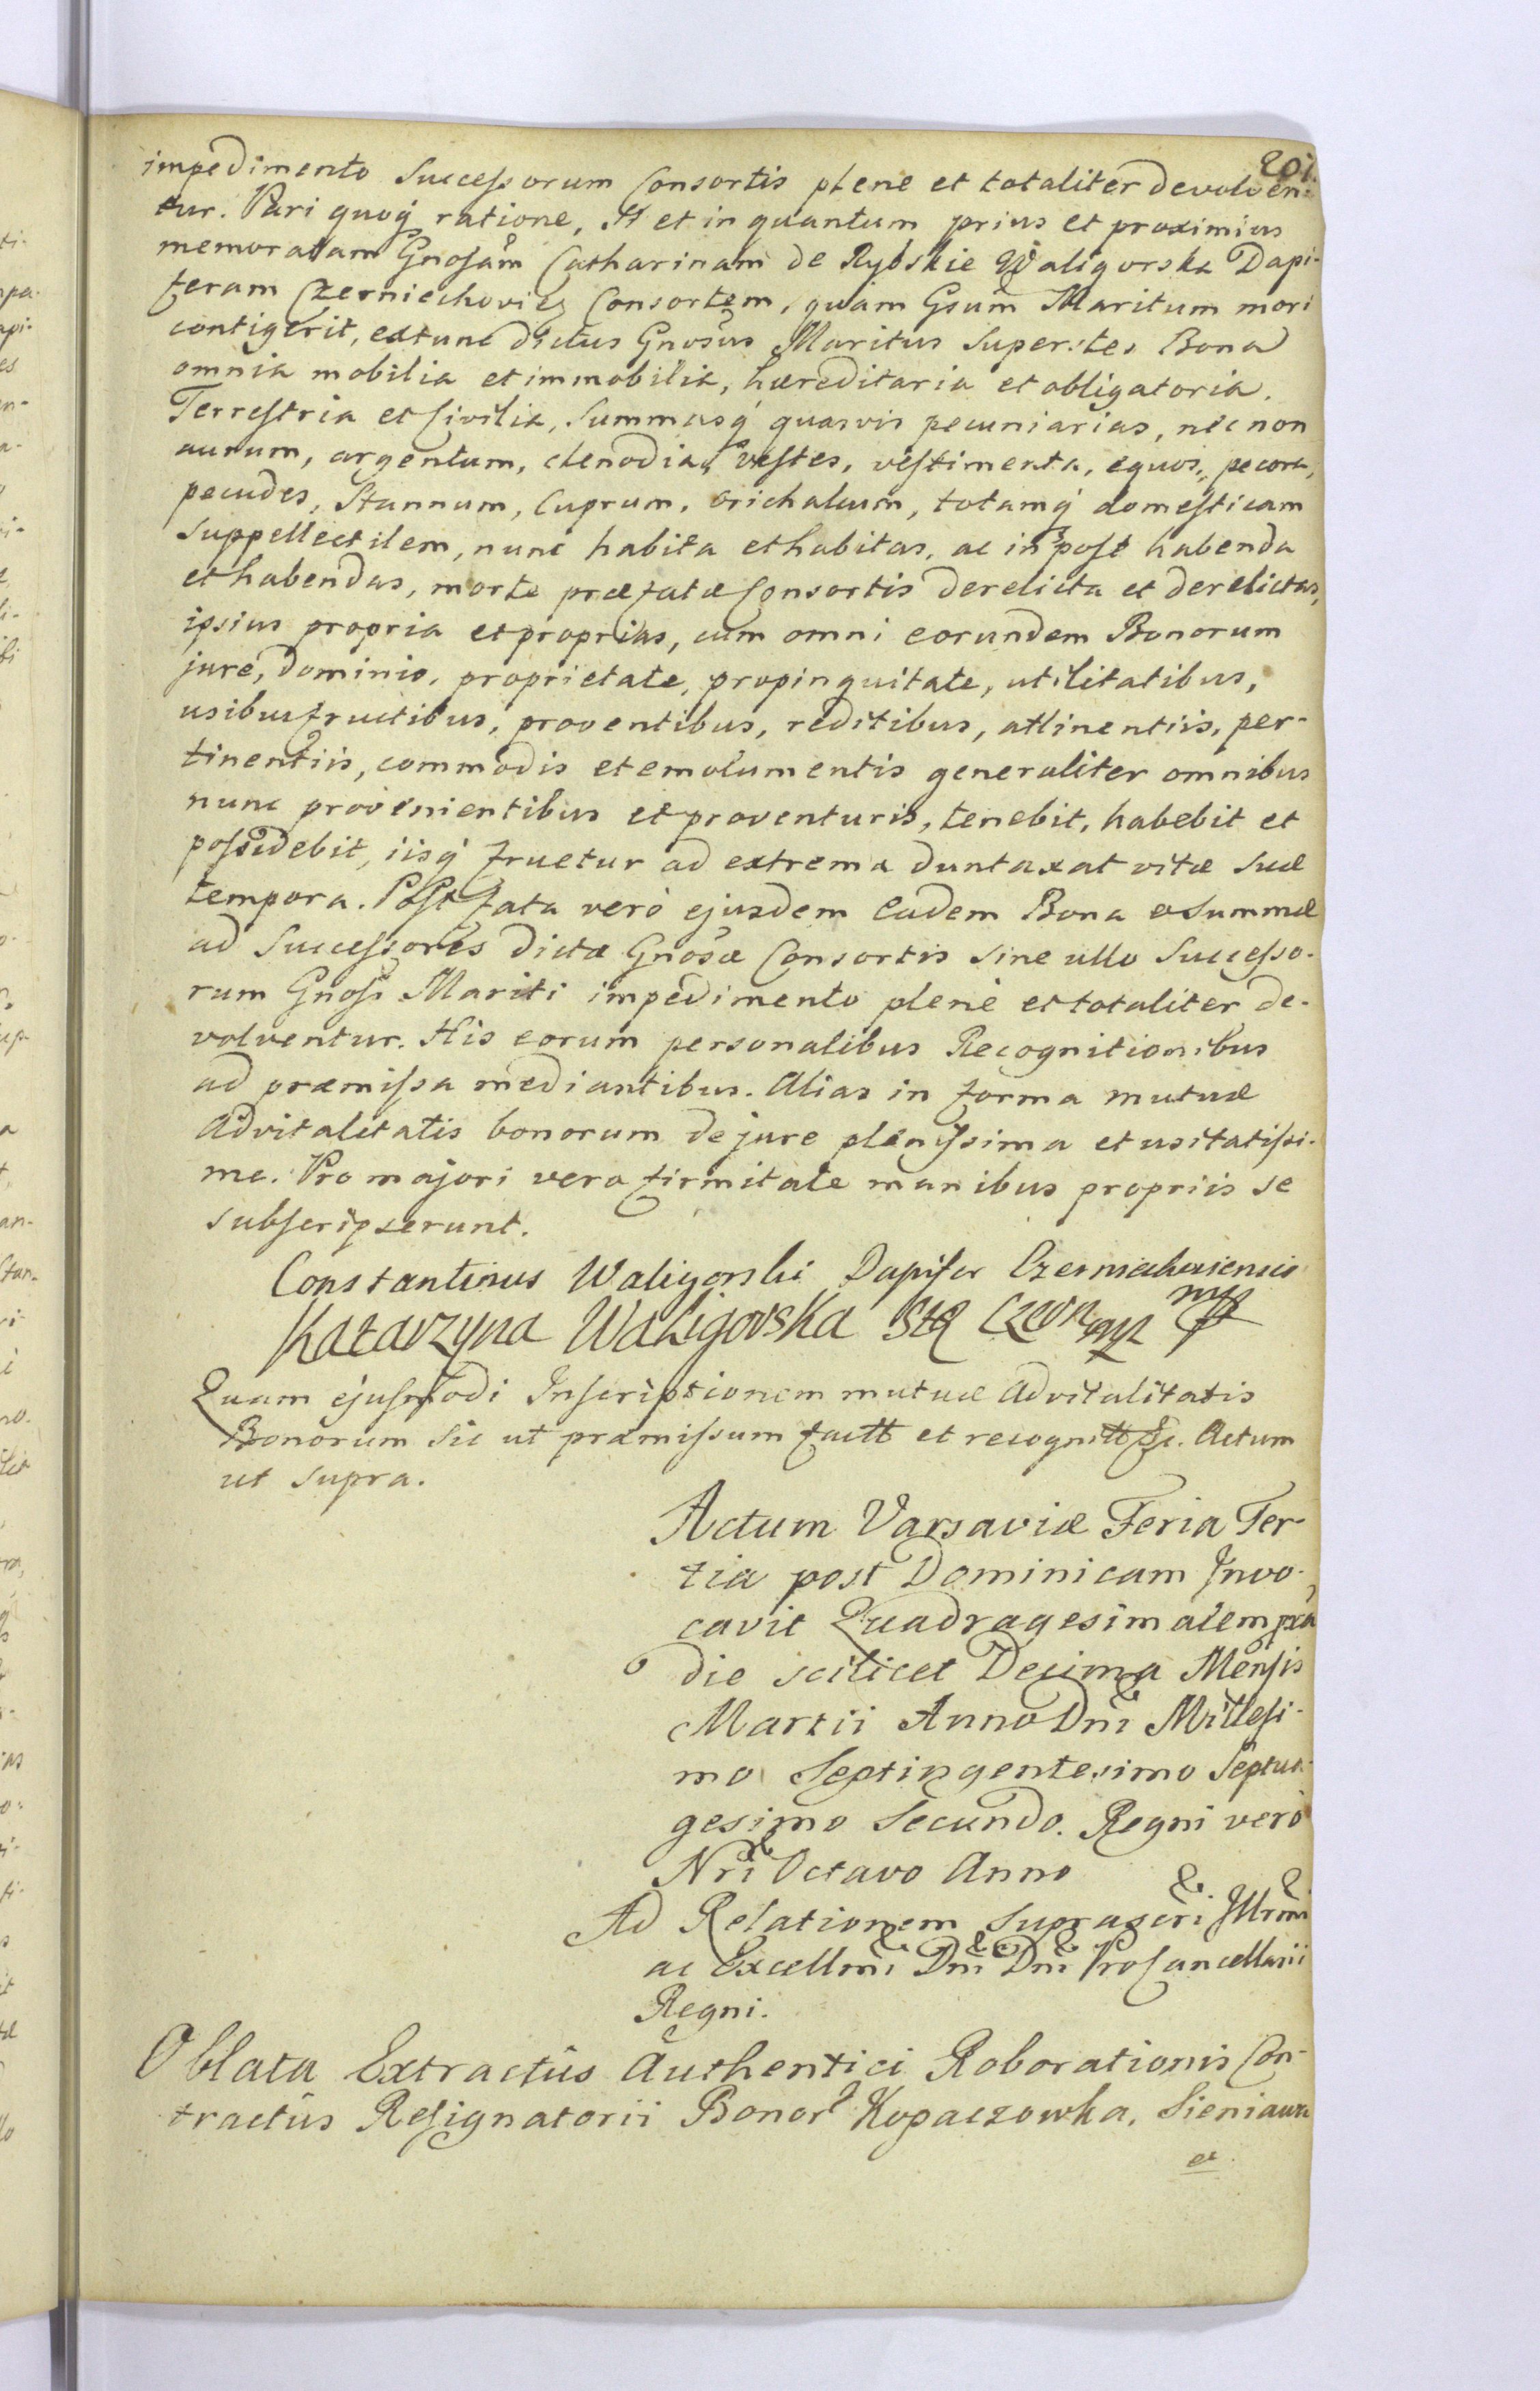 201.
impedimento Successorum Consortis plene et totaliter devolven-
tur. Pari quoq́ ratione, Si et in quantum prius et proximius
memoratam Gnosam Catharinam de Rybskie Waligorska Dapi-
feram Czerniechovien Consortem, quàm Gsum Maritum mori
contigerit, extunc dictus Gnosus Maritus Superstes Bona
omnia mobilia et immobilia, hæreditaria et obligatoria.
Terrestria et Civilia, Summasq́ quasvis pecuniarias, nec non
aurum, argentum, clenodia, vestes, vestimenta, equos, pecora,
pecudes, Stannum, Cuprum, orichalcum, totamq́ domesticam
suppellectilem, nunc habita et habitas, ac in post habenda
et habendas, morte præfatæ Consortis derelicta et derelictas,
ipsius propria et proprias, cum omni eorundem Bonorum
jure, dominio, proprietate, propinquitate, utilitatibus,
usibusfructibus, proventibus, reditibus, attinentiis, per-
tinentiis, commodis et emolumentis generaliter omnibus
nunc provenientibus et proventuris, tenebit, habebit et
possidebit, iisq́ fruetur ad extrema duntaxat vitæ suæ
tempora. Post fata verò ejusdem Eadem Bona et Summæ
ad Successores dictæ Gnosæ Consortis sine ullo Successo-
rum Gnosi Mariti impedimento plenè et totaliter de-
volventur. His eorum personalibus Recognitionibus
ad præmissa mediantibus. Alias in forma mutuæ
Advitalitatis bonorum de jure plenissima et usitatissi-
ma. Pro majori vero firmitate manibus propriis se
subscripserunt.
Constantinus Waligorski Dapifer Czerniechoviensis
Katarzyna Waligorska Stą Czer mp
Quam ejusmodi Inscriptionem mutuæ Advitalitatis
Bonorum sic ut præmissum factt et recognitt &c. Actum
ut supra.
Actum Varsaviæ Feria Ter-
tia post Dominicam Invo-
cavit Quadragesimalem pxa
die scilicet Decima Mensis
Martii Anno Dni Millesi-
mo Septingentesimo Septua-
gesimo Secundo. Regni verò
Nri Octavo Anno
Ad Relationem Suprascri Illrmi
ac Excellmi Dni Dni ProCancellarii
Regni.
Oblata Extractûs Authentici Roborationis Con-
tractûs Resignatorii Bonor Kopaczowka, Sieniawa
et